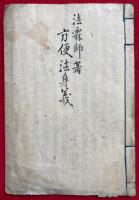 法霖師著
方便法身義